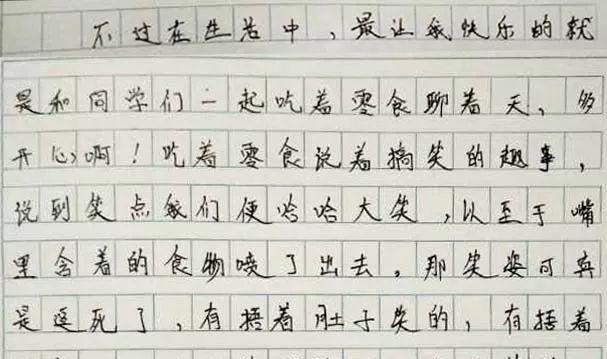 不过在生活中，最让我快乐的就
是和同学们一起吃着零食聊着天，多
开心啊！吃着零食说着搞笑的趣事，
说到笑点我们便哈哈大笑，以至于嘴
里含着的食物喷了出去，那笑姿可真
是逗死了，有捂着肚子笑的，有捂着